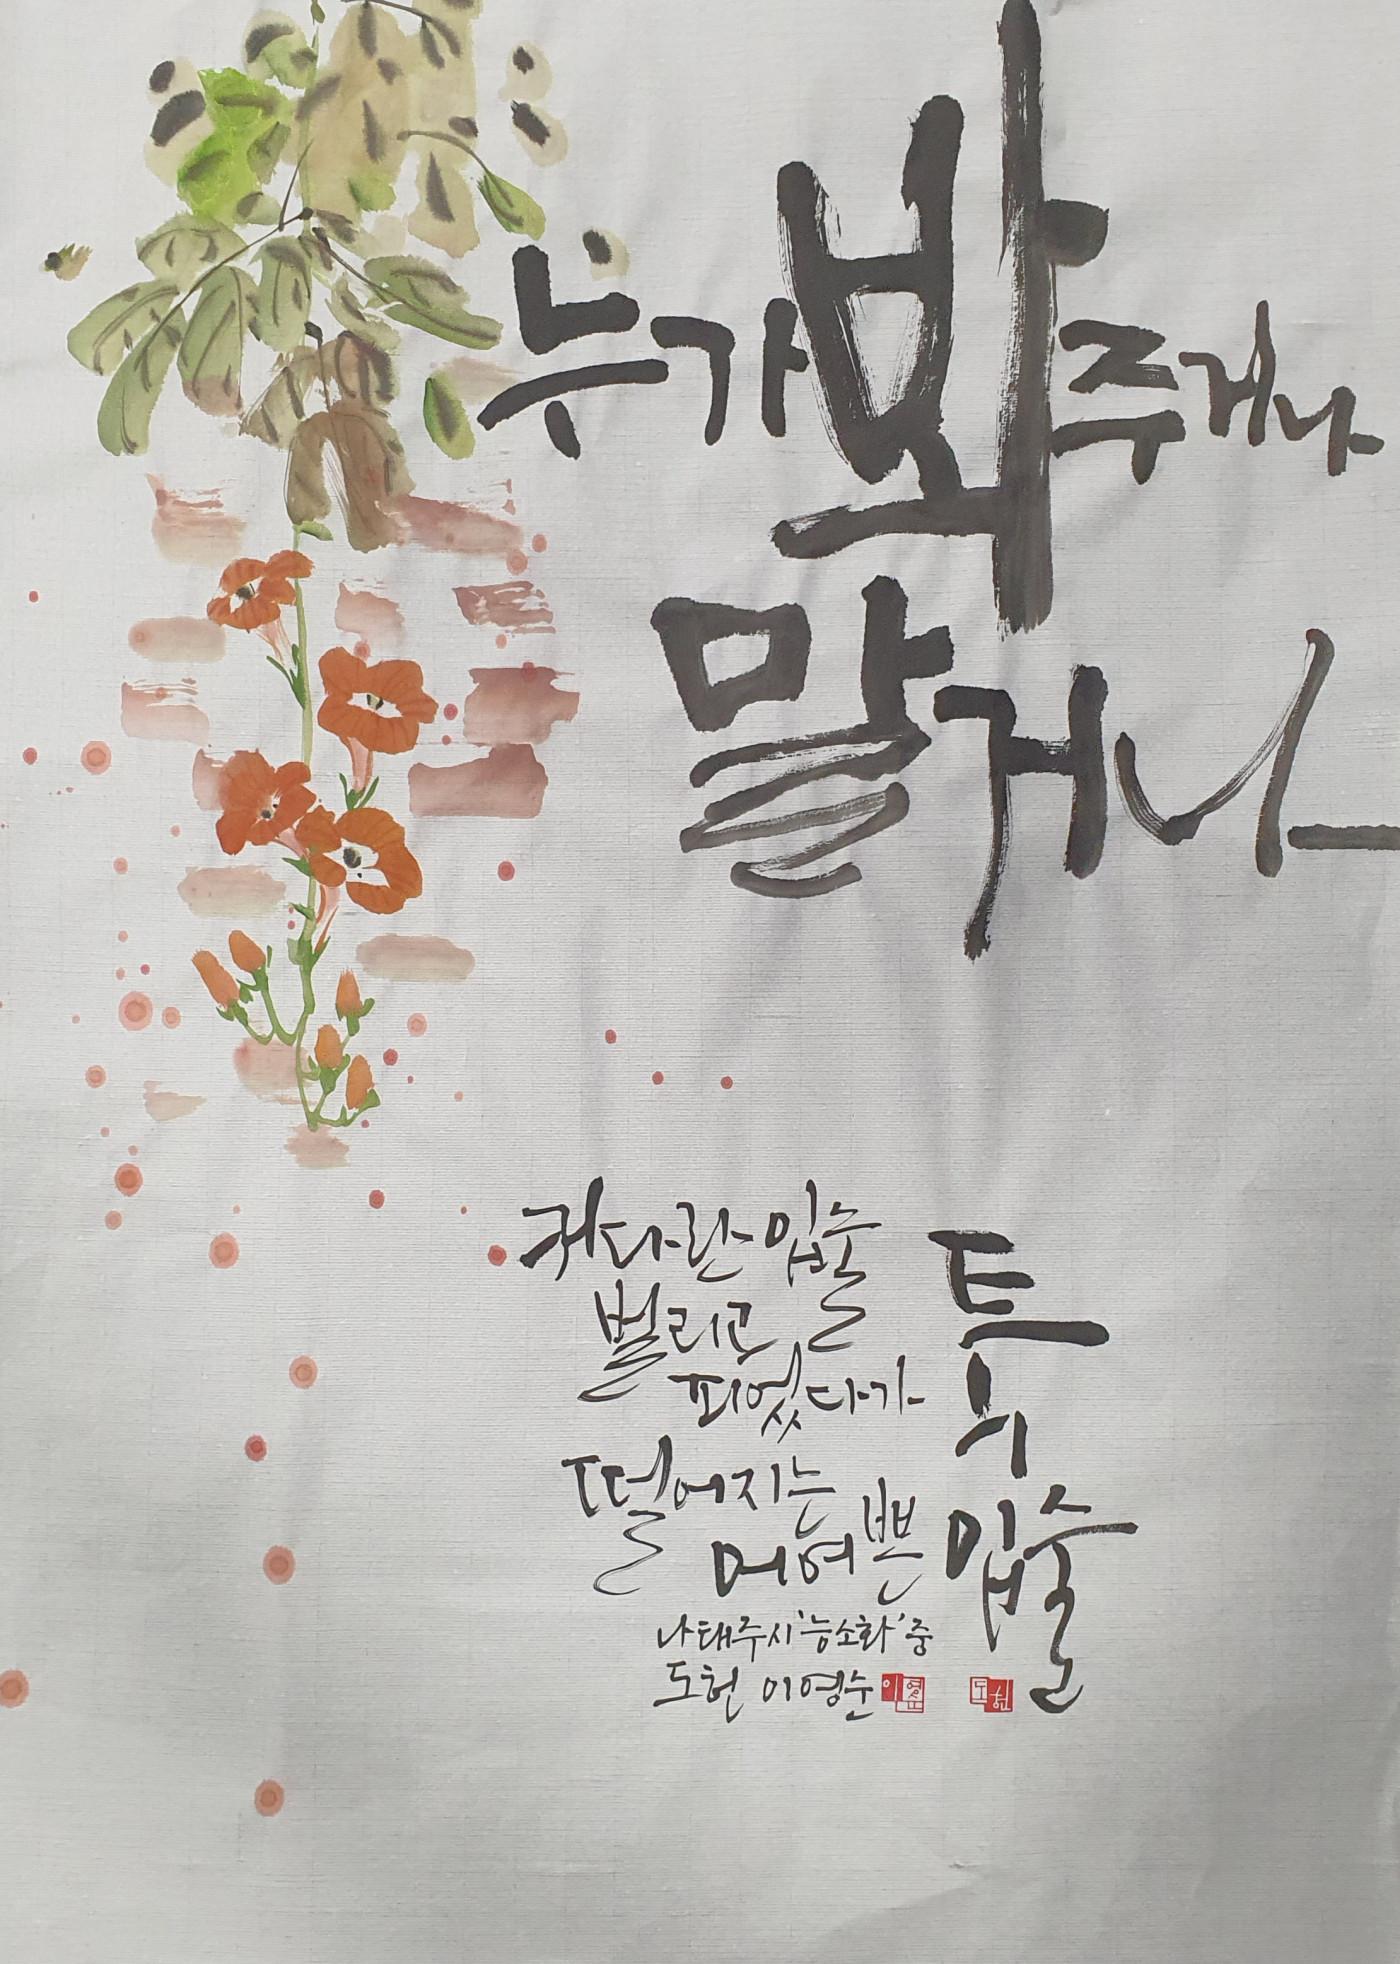 누가 봐주거나
말거나
커다란 입술
벌리고
피었다가
떨어지는
어여쁜
입술
나태주시 '능소화' 중
도헌 이영순
이영순
도헌